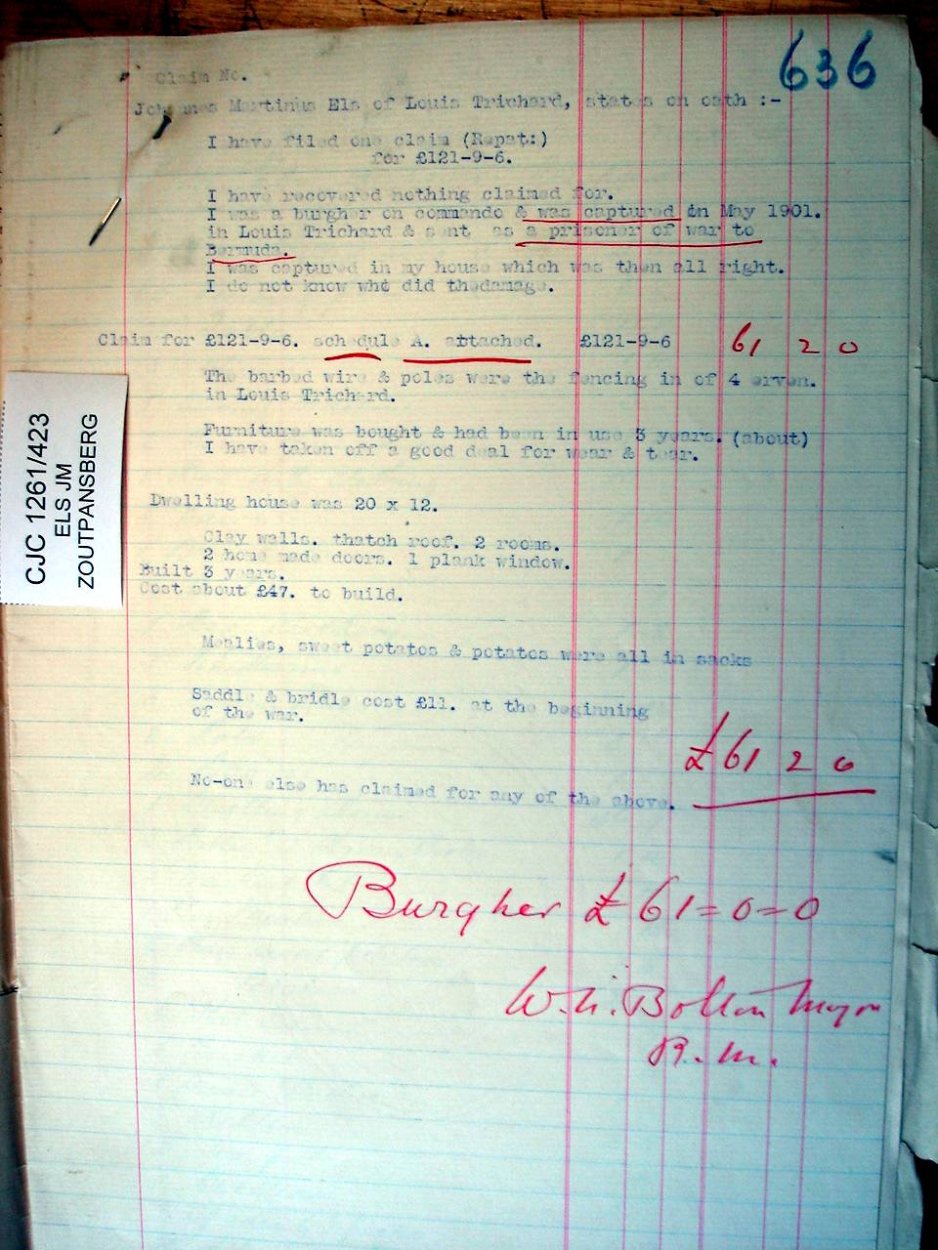 636
Claim No.
Johannes Martinus Els of Louis Trichard, states on oath :-
I have filed one claim (Repat:)
for £121-9-6.
I have recovered nothing claimed for.
I was a burgher on commando & was captured in May 1901.
in Louis Trichard & sent as a prisoner of war to
Bermuda.
I was captured in my house which was then all right.
I do not know who did thedamage.
Claim for £121-9-6. schedule A. attached. £121-9-6 61 2 0
The barbed wire & poles were the fencing in of 4 erven.
in Louis Trichard.
Furniture was bought & had been in use 3 years. (about)
I have taken off a good deal for wear & tear.
Dwelling house was 20 x 12.
Clay walls. thatch roof. 2 rooms.
2 home made doors. 1 plank window.
Built 3 years.
Cost about £47. to build.
Mealies, sweet potatos & potatos were all in sacks
Saddle & bridle cost £11. at the beginning
of the war.
£61 2 0
No-one else has claimed for any of the above.
Burgher £61=0=0
Bolton
R.M.
CJC 1261/423
ELS JM
ZOUTPANSBERG